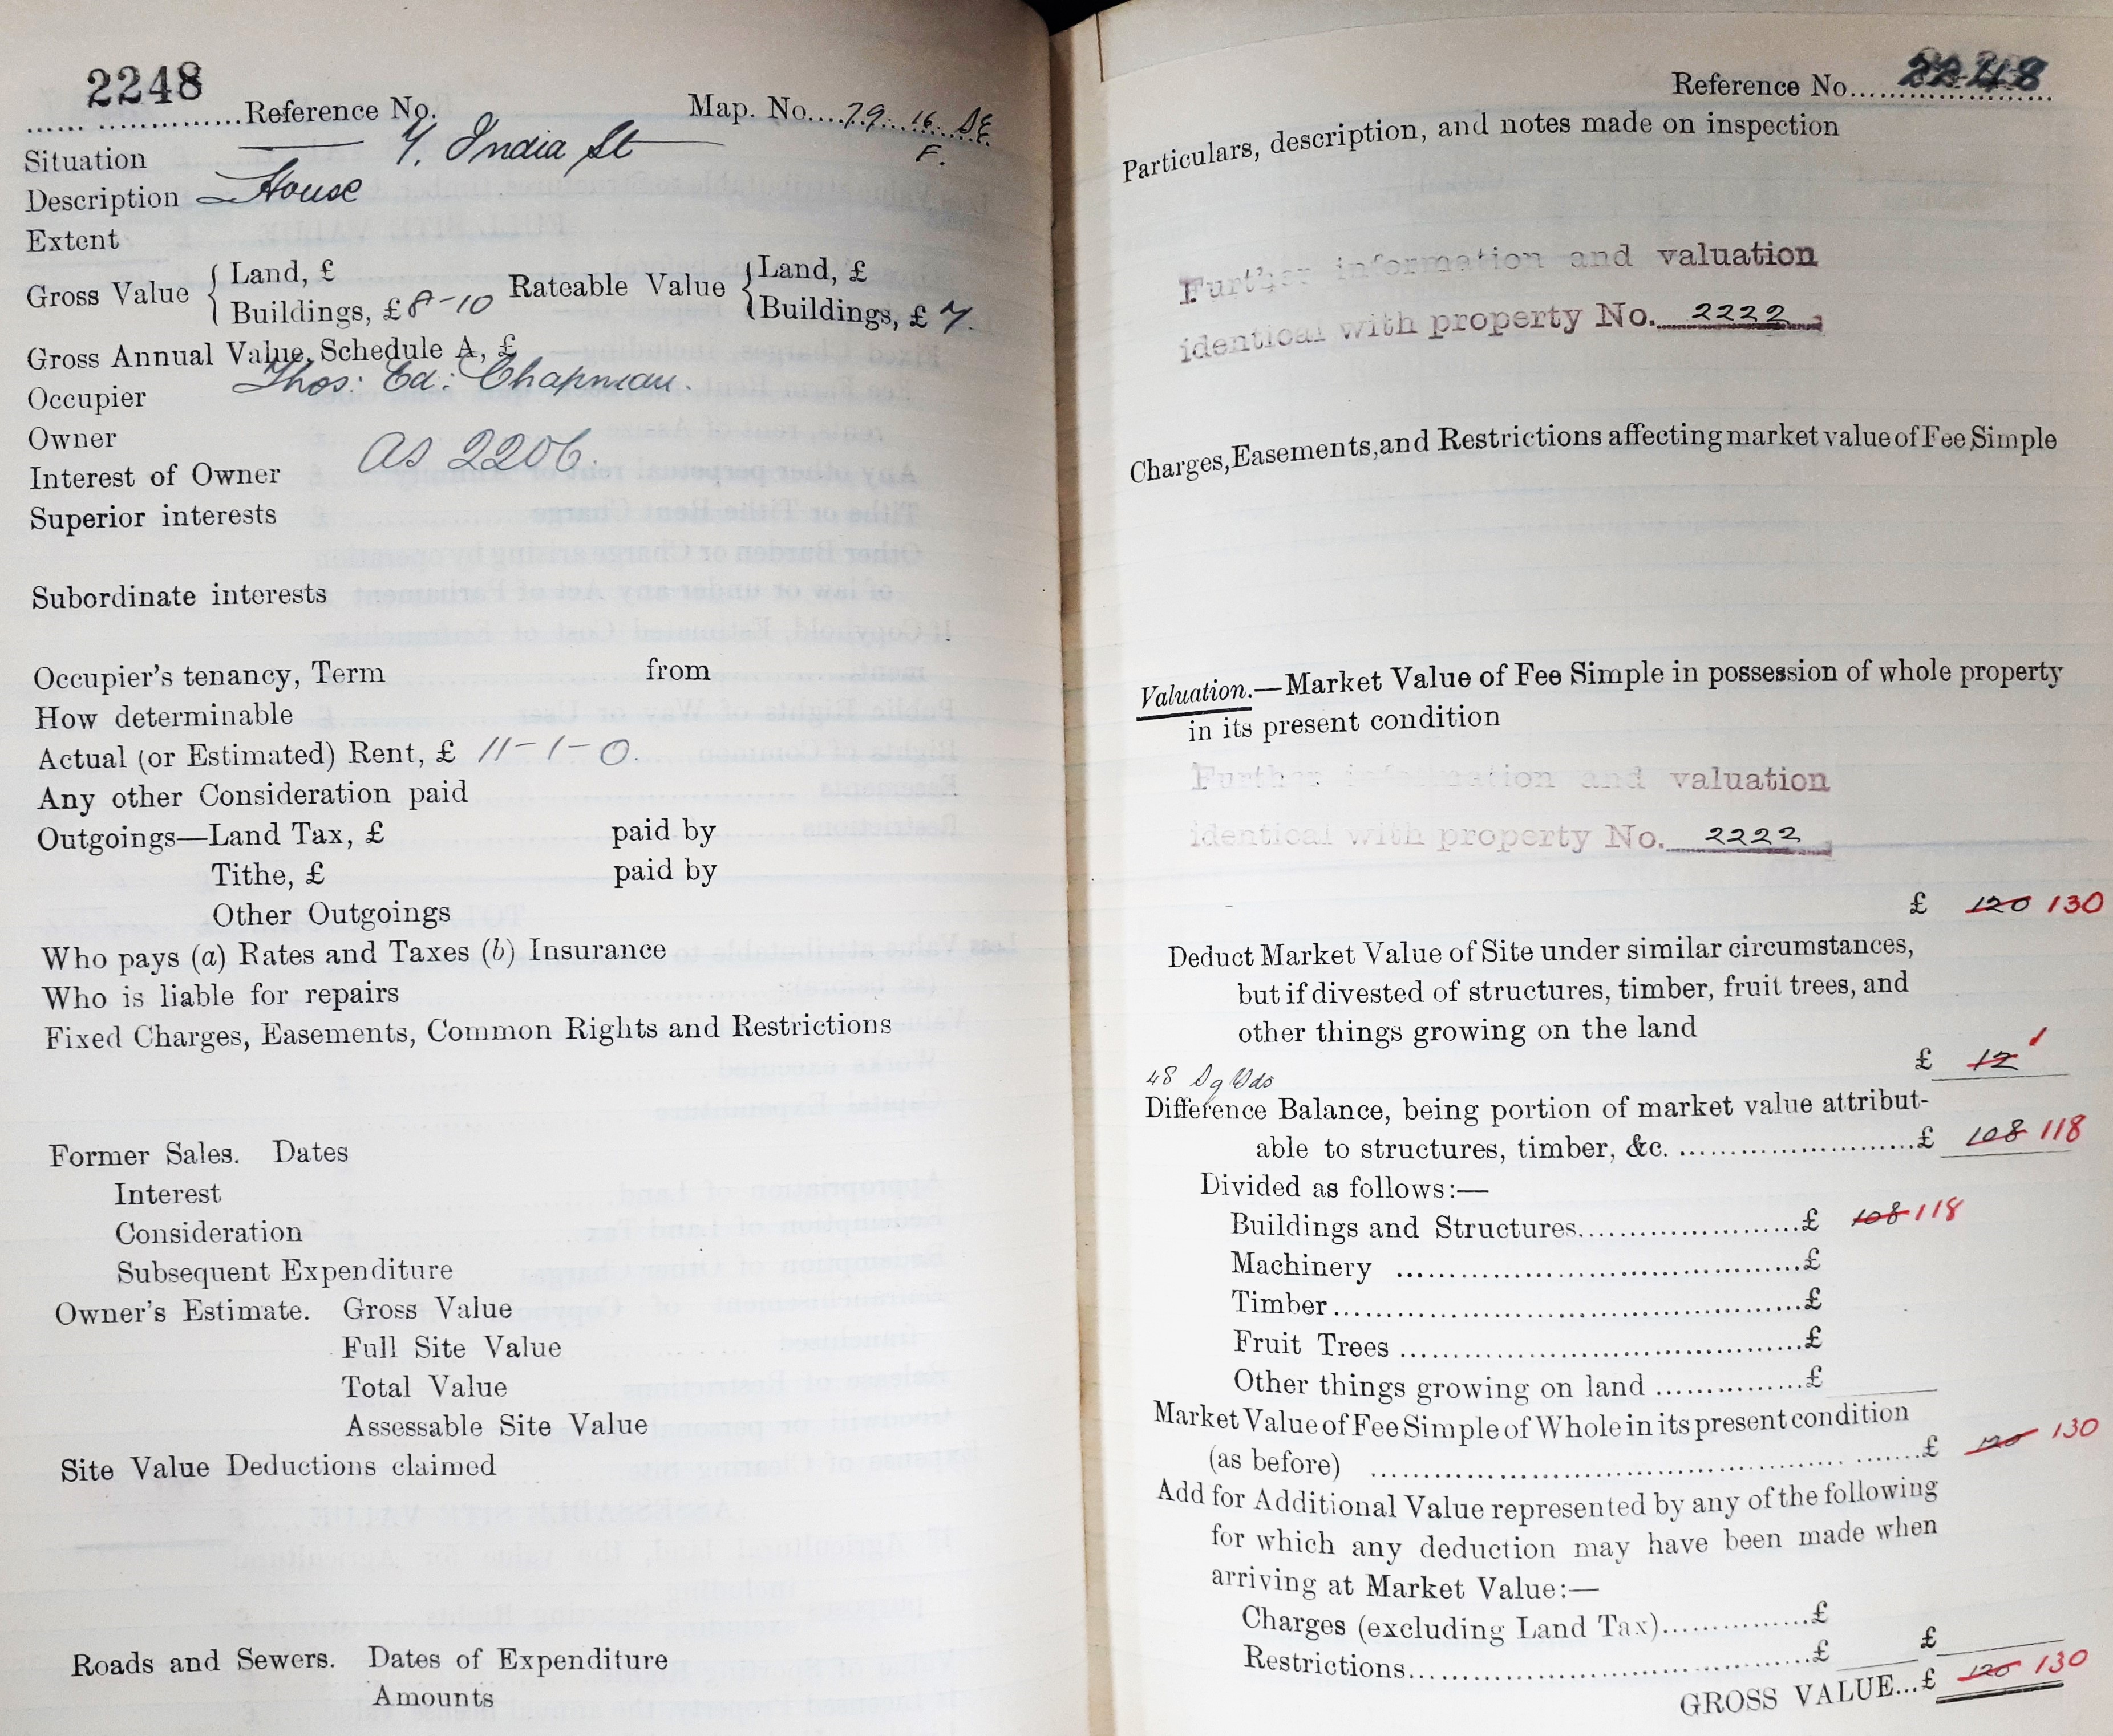 2248
Reference No. Map. No. 79. 16. SE.
F.
Situation 7, India St
Description House
Extent
Gross Value { Land, £ Rateable Value { Land, £
Buildings, £ 8-10 Buildings, £ 7.
Gross Annual Value, Schedule A, £
Occupier Thos: Ed: Chapman.
Owner
as 2206.
Interest of Owner
Superior interests
Subordinate interests
Occupier's tenancy, Term from
How determinable
Actual (or Estimated) Rent, £ 11-1-0.
Any other Consideration paid
Outgoings—Land Tax, £ paid by
Tithe, £ paid by
Other Outgoings
Who pays (a) Rates and Taxes (b) Insurance
Who is liable for repairs
Fixed Charges, Easements, Common Rights and Restrictions
Former Sales. Dates
Interest
Consideration
Subsequent Expenditure
Owner's Estimate. Gross Value
Full Site Value
Total Value
Assessable Site Value
Site Value Deductions claimed
Roads and Sewers. Dates of Expenditure
Amounts
Reference No. 2248
Particulars, description, and notes made on inspection
Further information and valuation
identical with property No. 2222
Charges, Easements, and Restrictions affecting market value of Fee Simple
Valuation.—Market Value of Fee Simple in possession of whole property
in its present condition
Further information and valuation
identical with property No. 2222
£ 120 130
Deduct Market Value of Site under similar circumstances,
but if divested of structures, timber, fruit trees, and
other things growing on the land
£ 12
48 Sq Yds
Difference Balance, being portion of market value attribut-
able to structures, timber, &c. £ 108 118
Divided as follows:—
Buildings and Structures £ 108 118
Machinery £
Timber £
Fruit Trees £
Other things growing on land £
Market Value of Fee Simple of Whole in its present condition
(as before) £ 120 130
Add for Additional Value represented by any of the following
for which any deduction may have been made when
arriving at Market Value:—
Charges (excluding Land Tax) £
Restrictions £ £
GROSS VALUE...£ 120 130